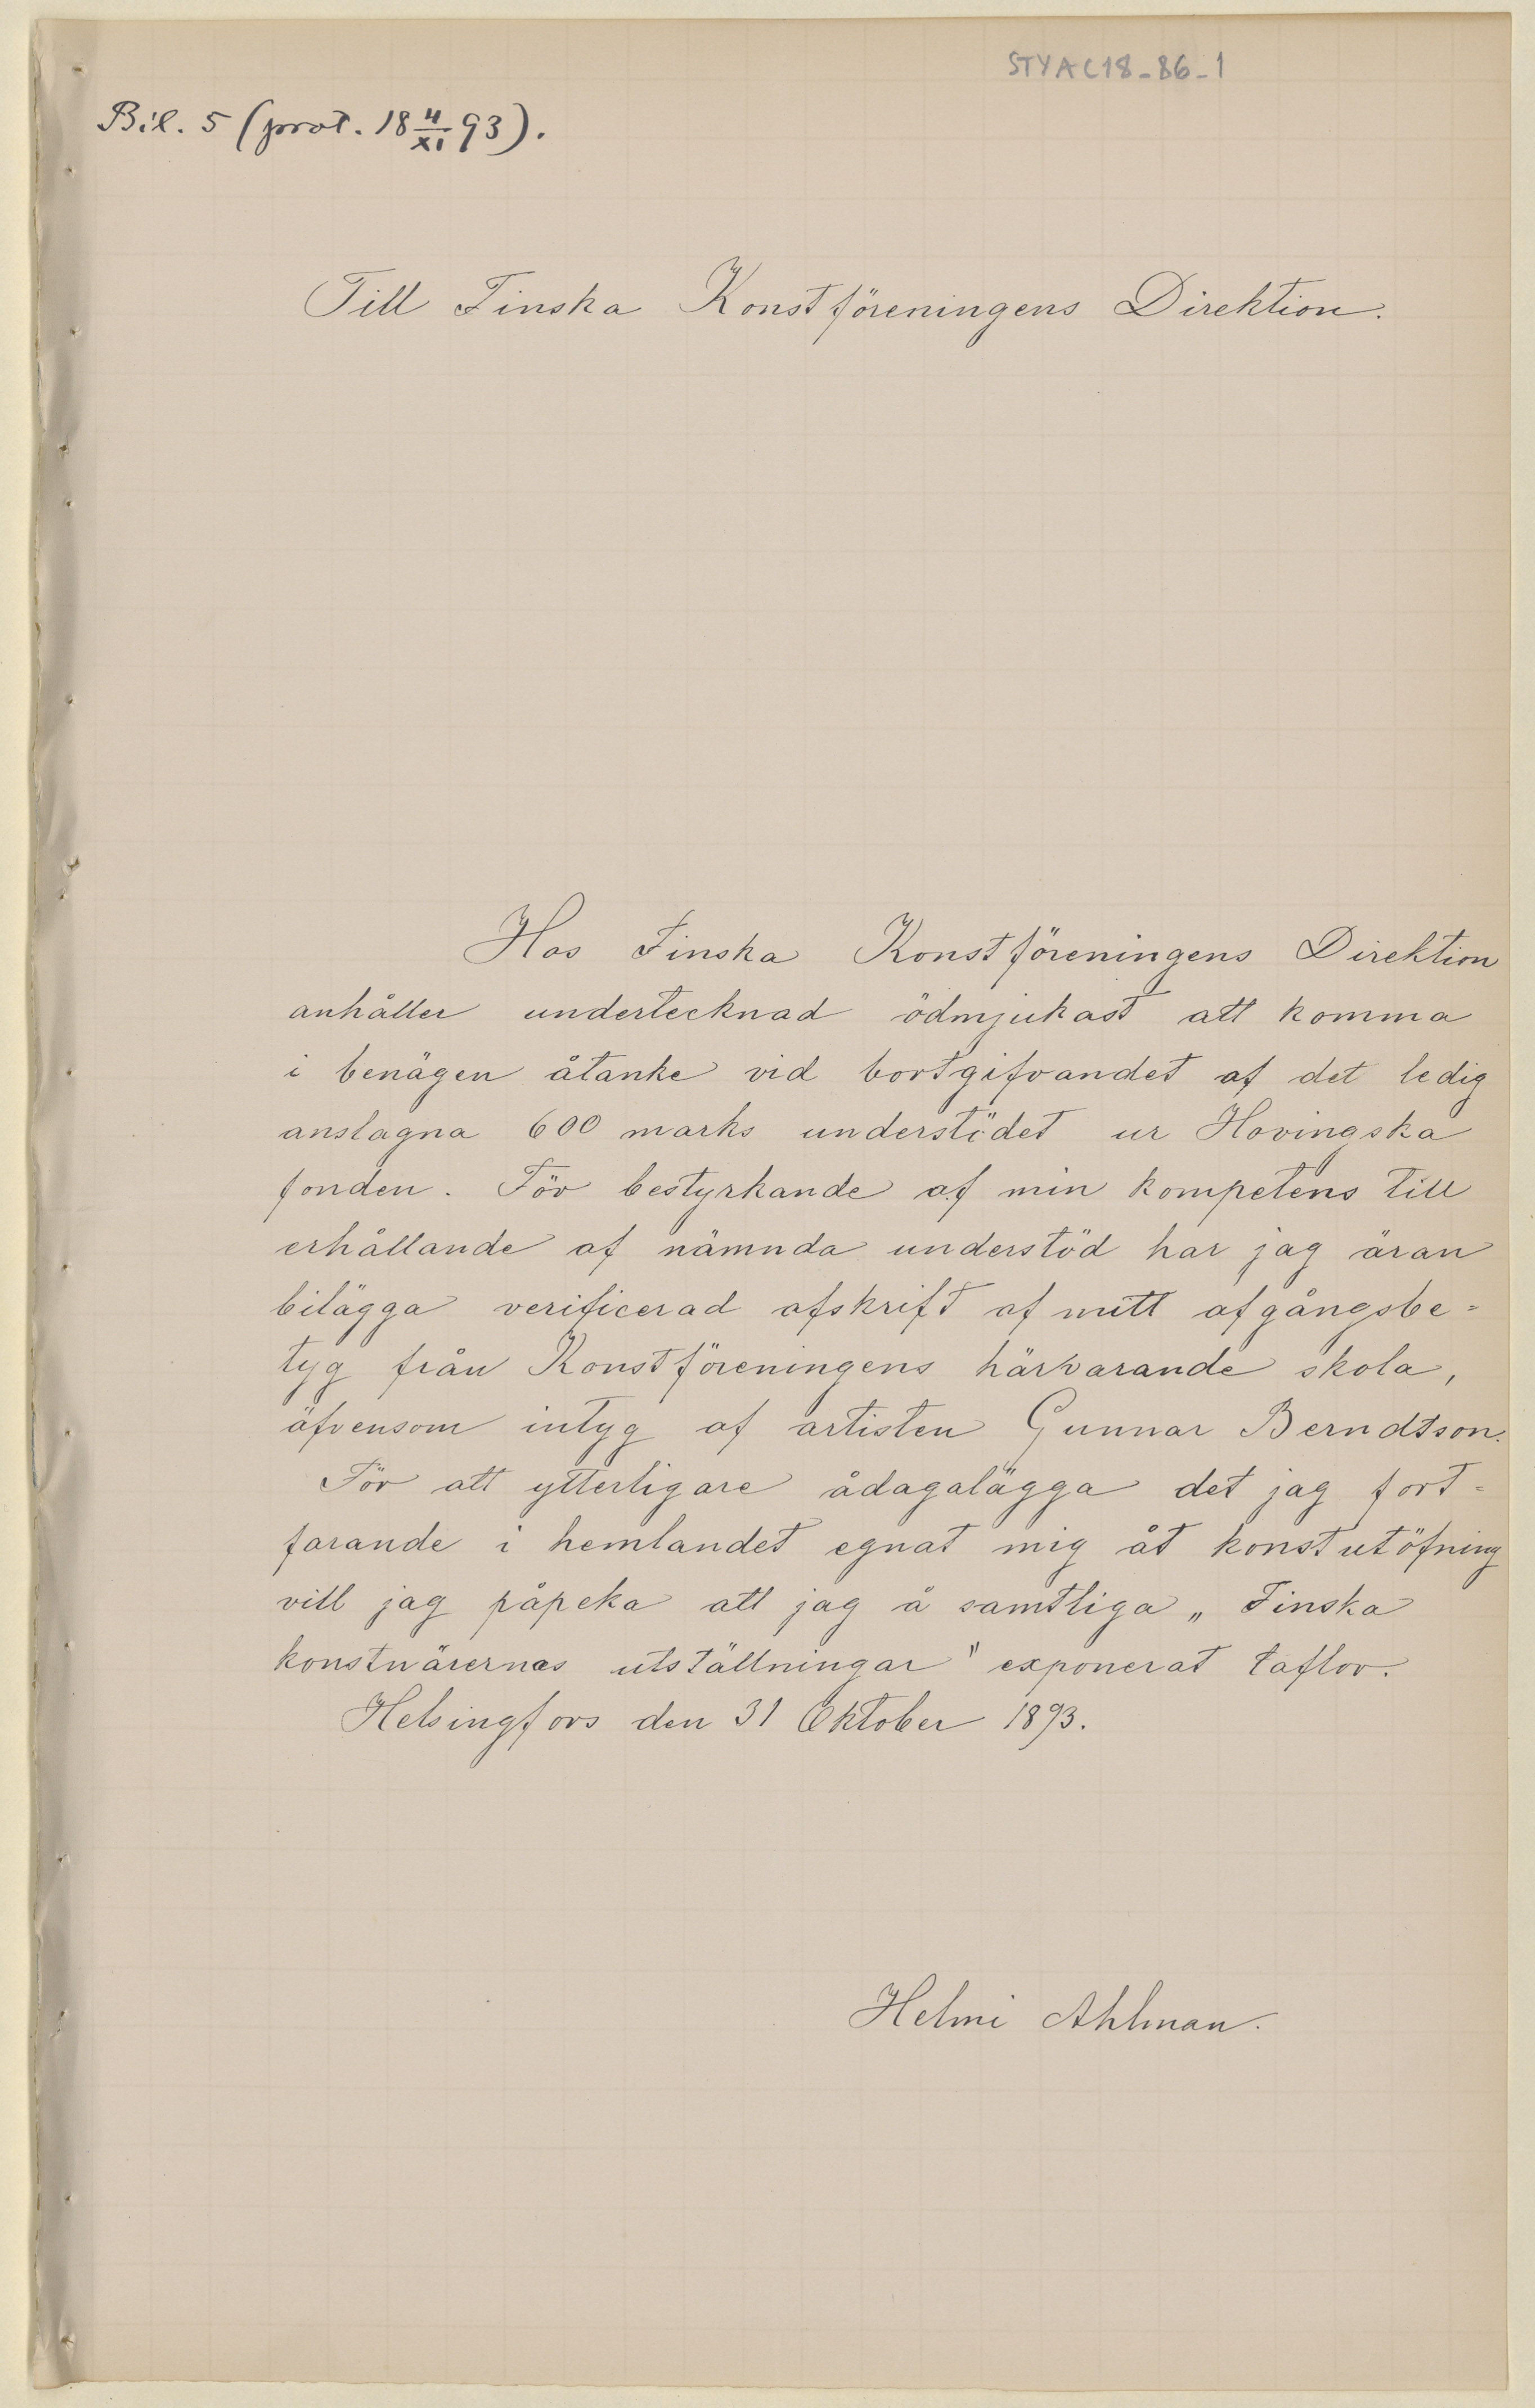 STYA C18-86-1
Bil. 5 (prot. 18 4/XI 93).
Till Finska Konstföreningens Direktion.
Hos Finska Konstföreningens Direktion
anhåller undertecknad ödmjukast att komma
i benägen åtanke vid bortgifvandet af det ledig
anslagna 600 marks understödet ur Hovingska
fonden. För bestyrkande af min kompetens till
erhållande af nämnda understöd har jag äran
bilägga verificerad afskrift af mitt afgångsbe=
tyg från Konstföreningens härvarande skola,
äfvensom intyg af artisten Gunnar Berndtson.
För att ytterligare ådagalägga det jag fort=
farande i hemlandet egnat mig åt konstutöfning
vill jag påpeka att jag å samtliga „Finska
konstnärernas utställningar" exponerat taflor.
Helsingfors den 31 Oktober 1893.
Helmi Ahlman.